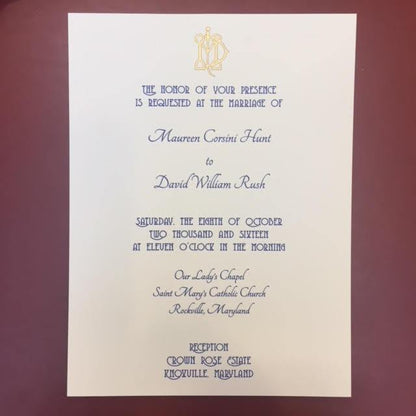 THE HONOR OF YOUR PRESENCE
IS REQUESTED AT THE MARRIAGE OF
Maureen Corsini Hunt
to
David William Rush
SATURDAY, THE EIGHTH OF OCTOBER
TWO THOUSAND AND SIXTEEN
AT ELEVEN O'CLOCK IN THE MORNING
Our Lady's Chapel
Saint Mary's Catholic Church
Rockville, Maryland
RECEPTION
CROWN ROSE ESTATE
KNOXVILLE, MARYLAND